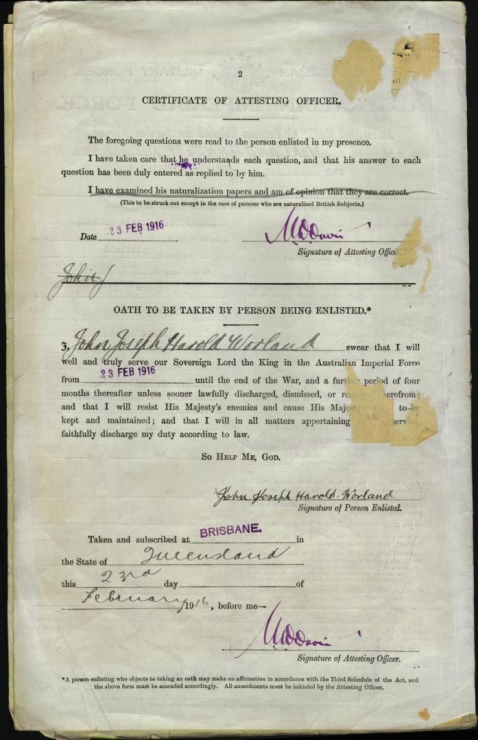 2
CERTIFICATE OF ATTESTING OFFICER.
The foregoing questions were read to the person enlisted in my presence.
I have taken care that he understands each question, and that his answer to each
question has been duly entered as replied to by him.
I have examined his naturalization papers and am of opinion that they are correct.
(This to be struck out except in the case of persons who are naturalised British Subjects.)
Date 23 FEB 1916
Signature of Attesting Officer.
John J
OATH TO BE TAKEN BY PERSON BEING ENLISTED.*
3. John Joseph Harold Worland swear that I will
well and truly serve our Sovereign Lord the King in the Australian Imperial Force
from 23 FEB 1916 until the end of the War, and a further period of four
months thereafter unless sooner lawfully discharged, dismissed, or r herefrom;
and that I will resist His Majesty's enemies and cause His Maje to be
kept and maintained; and that I will in all matters appertaining service,
faithfully discharge my duty according to law.
SO HELP ME, GOD.
John Joseph Harold Worland
Signature of Person Enlisted.
Taken and subscribed at BRISBANE. in
the State of Queensland
this 23rd day of
February 1916, before me—
Signature of Attesting Officer.
*A person enlisting who objects to taking an oath may make an affirmation in accordance with the Third Schedule of the Act, and
the above form must be amended accordingly. All amendments must be initialed by the Attesting Officer.